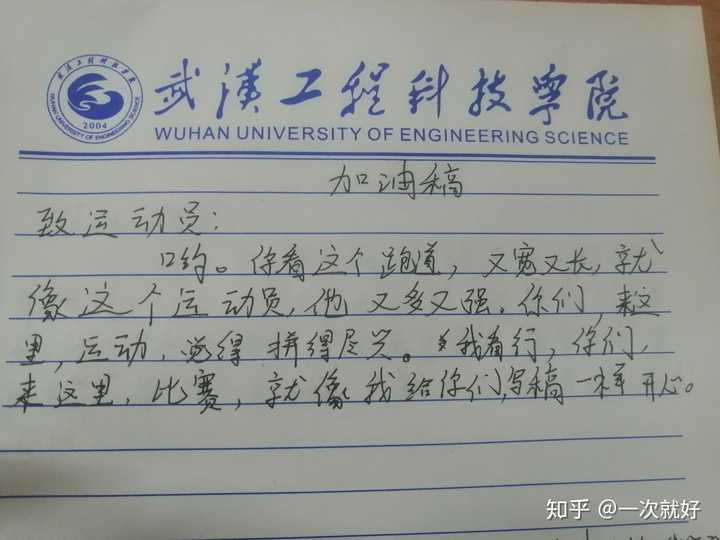 武汉工程科技学院
2004
武漢工程科技学院
WUHAN UNIVERSITY OF ENGINEERING SCIENCE
加油稿
致运动员:
哟。你看这个跑道,又宽又长,就
像这个运动员,他又多又强,你们,来这
里,运动,觉得拼得尽兴。我看行,你们,
来这里,比赛,就像我给你们,写稿一样开心。
知乎 @一次就好